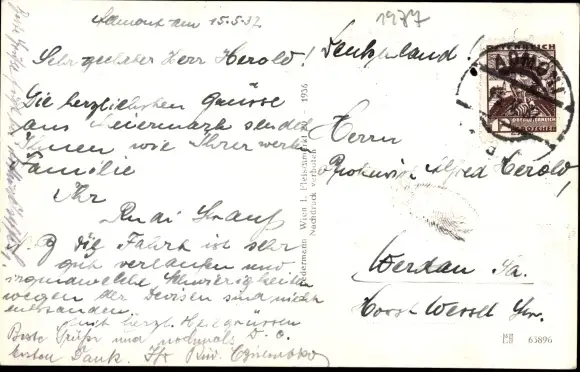 Admont am 15.5.37
1937
Sehr geehrter Herr Herold!
Deutschland!
Die herzlichsten Grüsse
aus Steiermark sendet
Ihnen wie Ihrer werten
Familie
Ihr
Rudi
N.B. die Fahrt ist sehr
gut verlaufen und
irgendwelche Schwierigkeiten
wegen der Devisen sind nicht
entstanden.
mit herzl. Heilgrüssen
Beste Grüße und nochmals
besten Dank. Ihr
ÖSTERREICH
ADMONT
Herrn
Alfred Herold,
Werdau Sa.
Horst Wessel Str.
Ledermann Wien I, Fleischmarkt 20 - 1936
Nachdruck verboten
63896